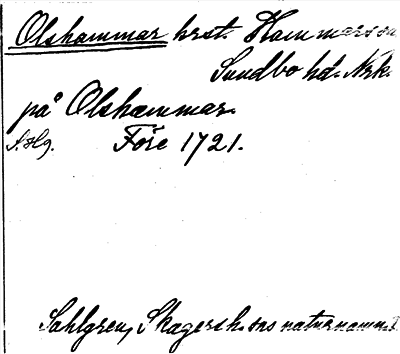 Olshammar hrst. Hammars sn
Sundbo hd. Nrk.
på Olshammar.
f. Hg. Före 1721.
Sahlgren, Skagersh. sns naturnamn. 1